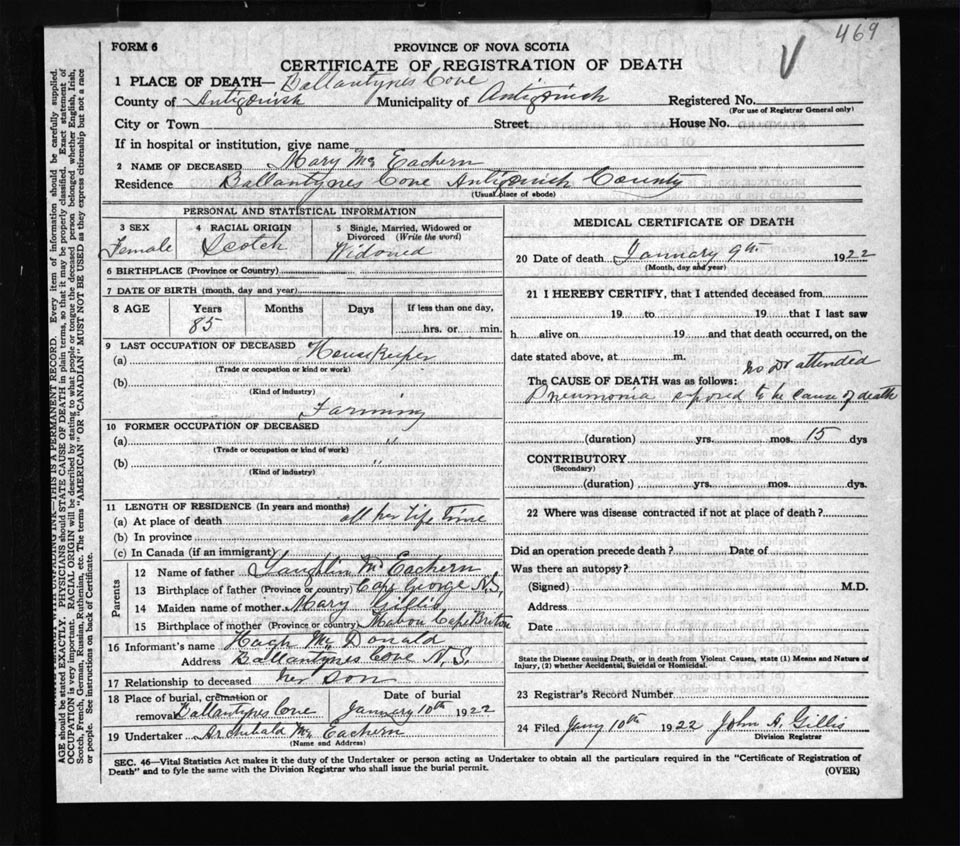 469
FORM 6
PROVINCE OF NOVA SCOTIA
CERTIFICATE OF REGISTRATION OF DEATH
1 PLACE OF DEATH— Ballantynes Cove
County of Antigonish Municipality of Antigonish Registered No.
(For use of Registrar General only)
City or Town Street House No.
If in hospital or institution, give name
2 NAME OF DECEASED Mary Mc Eachern
Residence Ballantynes Cove Antigonish County
(Usual place of abode)
PERSONAL AND STATISTICAL INFORMATION
3 SEX 4 RACIAL ORIGIN 5 Single, Married, Widowed or
Divorced (Write the word)
Female Scotch Widowed
6 BIRTHPLACE (Province or Country)
7 DATE OF BIRTH (month, day and year)
8 AGE Years Months Days If less than one day,
85 hrs. or min.
9 LAST OCCUPATION OF DECEASED Housekeeper
(a)
(Trade or occupation or kind or work)
(b)
(Kind of industry)
Farming
10 FORMER OCCUPATION OF DECEASED
(a) "
(Trade or occupation or kind of work)
(b) "
(Kind of industry)
11 LENGTH OF RESIDENCE (In years and months)
(a) At place of death all her life time
(b) In province
(c) In Canada (if an immigrant)
Parents
12 Name of father Laughlin Mc Eachern
13 Birthplace of father (Province or country) Cape George N.S.
14 Maiden name of mother Mary Gillis
15 Birthplace of mother (Province or country) Mabou Cape Briton
16 Informant's name Hugh Mc Donald
Address Ballantynes Cove N.S.
17 Relationship to deceased her son
18 Place of burial, cremation or Date of burial
removal Ballantynes Cove January 10th 1922
19 Undertaker Archibald Mc Eachern
(Name and Address)
MEDICAL CERTIFICATE OF DEATH
20 Date of death January 9th 1922
(Month, day and year)
21 I HEREBY CERTIFY, that I attended deceased from
19 to 19 that I last saw
h alive on 19 and that death occurred, on the
date stated above, at m.
no Dr attended
The CAUSE OF DEATH was as follows:
Pneumonia soposed to be cause of death
(duration) yrs. mos. 15 dys
CONTRIBUTORY
(Secondary)
(duration) yrs. mos. dys.
22 Where was disease contracted if not at place of death?
Did an operation precede death? Date of
Was there an autopsy?
(Signed) M.D.
Address
Date
State the Disease causing Death, or in death from Violent Causes, state (1) Means and Nature of
Injury, (2) whether Accidental, Suicidal or Homicidal.
23 Registrar's Record Number
24 Filed Jany 10th 1922 John A. Gillis
Division Registrar
SEC. 46—Vital Statistics Act makes it the duty of the Undertaker or person acting as Undertaker to obtain all the particulars required in the "Certificate of Registration of
Death" and to fyle the same with the Division Registrar who shall issue the burial permit.
(OVER)
UNFADING INK—THIS IS A PERMANENT RECORD. Every item of information should be carefully supplied.
AGE should be stated EXACTLY. PHYSICIANS should STATE CAUSE OF DEATH in plain terms, so that it may be properly classified. Exact statement of
OCCUPATION is very important. RACIAL ORIGIN will be described by stating to what people or tongue the deceased person belonged whether English, Irish,
Scotch, French, German, Russian, Ruthenian, etc. The terms "AMERICAN" OR "CANADIAN" MUST NOT BE USED as they express citizenship but not a race
or people. See instructions on back of Certificate.